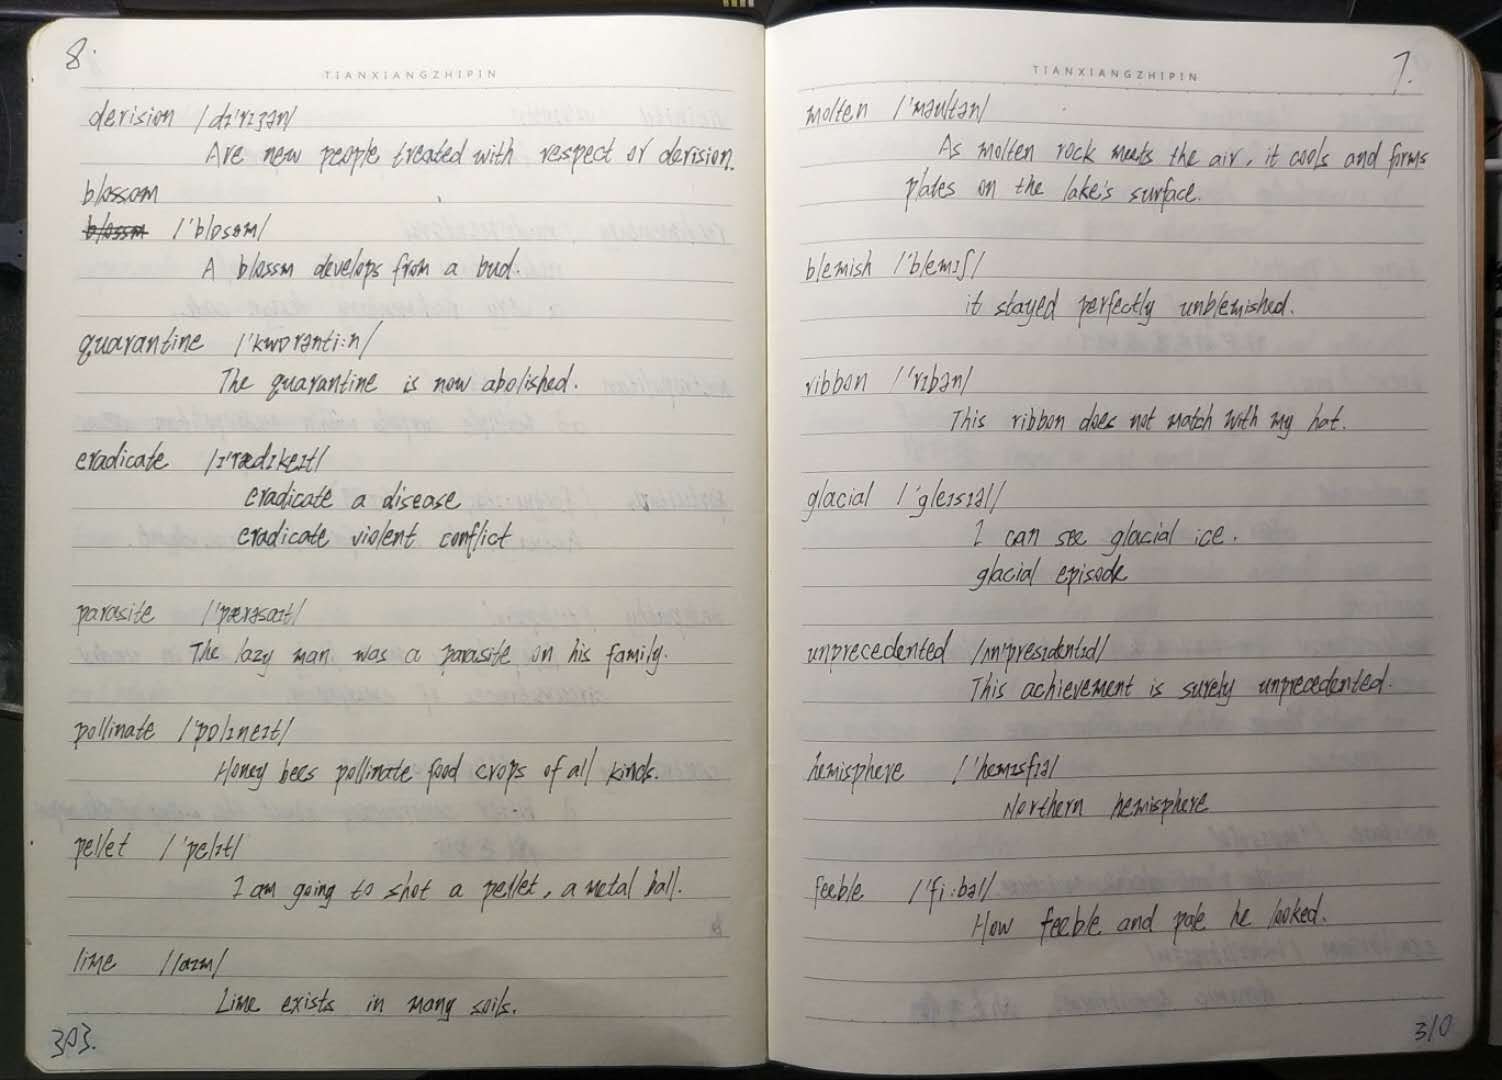 8.
TIANXIANGZHIPIN
derision /dɪ'rɪʒən/
Are new people treated with respect or derision.
blossom
blossm /'blɒsəm/
A blossm develops from a bud.
quarantine /'kwɒrənti:n/
The quarantine is now abolished.
eradicate /ɪ'rædɪkeɪt/
eradicate a disease
eradicate violent conflict
parasite /'pærəsaɪt/
The lazy man was a parasite on his family.
pollinate /'pɒlɪneɪt/
Honey bees pollinate food crops of all kinds.
pellet /'pelɪt/
I am going to shot a pellet, a metal ball.
lime /laɪm/
Lime exists in many soils.
303.
7.
TIANXIANGZHIPIN
molten /'məultən/
As molten rock meets the air, it cools and forms
plates on the lake's surface.
blemish /'blemɪʃ/
it stayed perfectly unblemished.
ribbon /'rɪbən/
This ribbon does not match with my hat.
glacial /'gleɪsɪəl/
I can see glacial ice.
glacial episode
unprecedented /ʌn'presɪdentɪd/
This achievement is surely unprecedented.
hemisphere /'hemɪsfɪə/
Northern hemisphere
feeble /'fi:bəl/
How feeble and pale he looked.
310